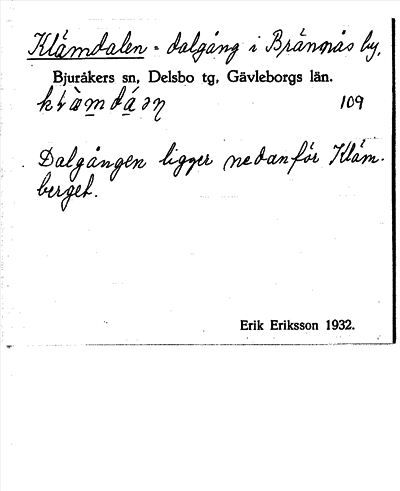 Klämdalen = dalgång i Brännås by,
Bjuråkers sn, Delsbo tg, Gävleborgs län.
109
Dalgången ligger nedanför Kläm-
berget.
Erik Eriksson 1932.